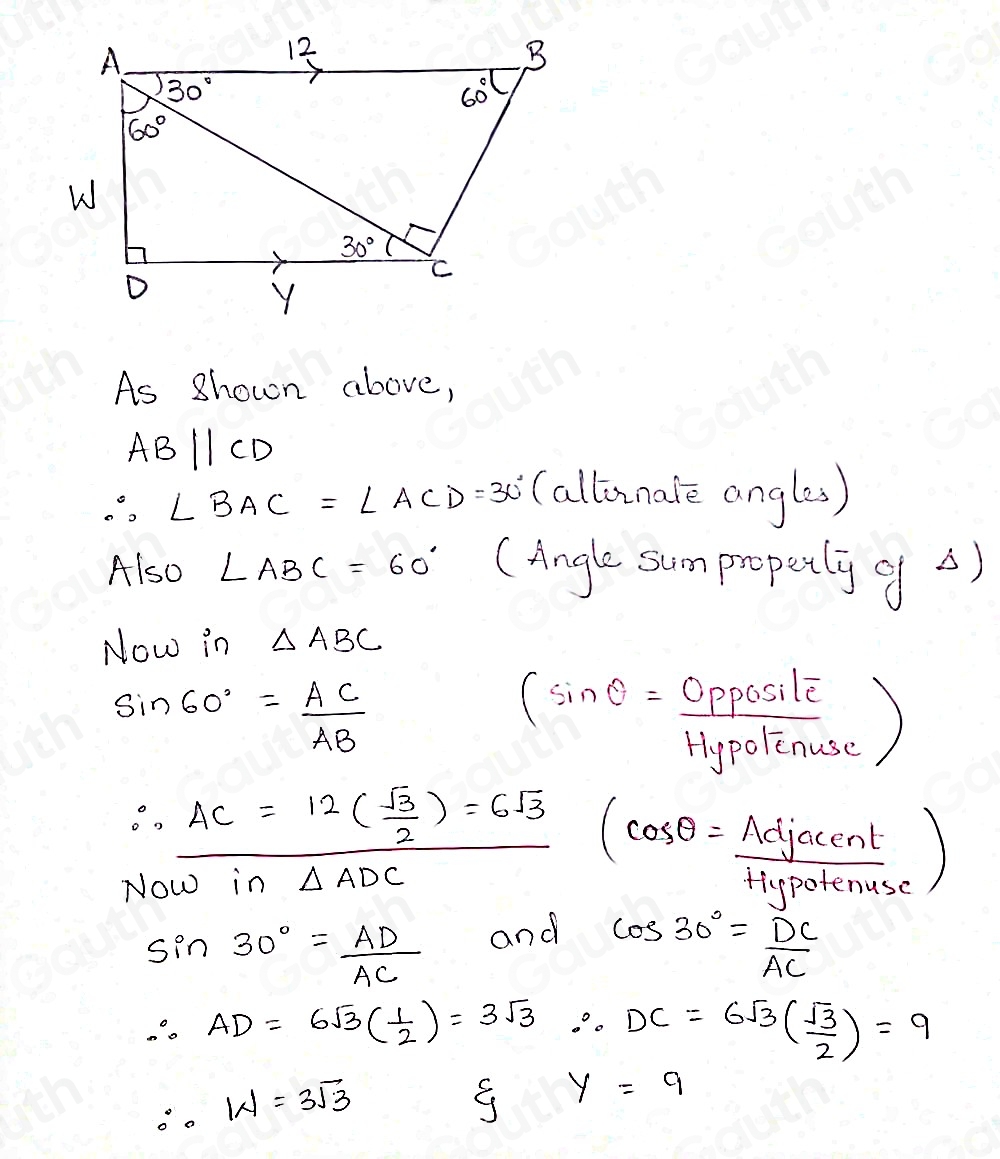 A 12 B
30° 60°
60°
W
30°
D Y C
As shown above,
AB || CD
∴ ∠BAC = ∠ACD = 30° (alternate angles)
Also ∠ABC = 60° (Angle sum property of Δ)
Now in ΔABC
Sin 60° = AC/AB (sin θ = Opposite/Hypotenuse)
∴ AC = 12(√3/2) = 6√3 (cos θ = Adjacent/Hypotenuse)
Now in ΔADC
Sin 30° = AD/AC and Cos 30° = DC/AC
∴ AD = 6√3(1/2) = 3√3 ∴ DC = 6√3(√3/2) = 9
∴ W = 3√3 & Y = 9
Gauth